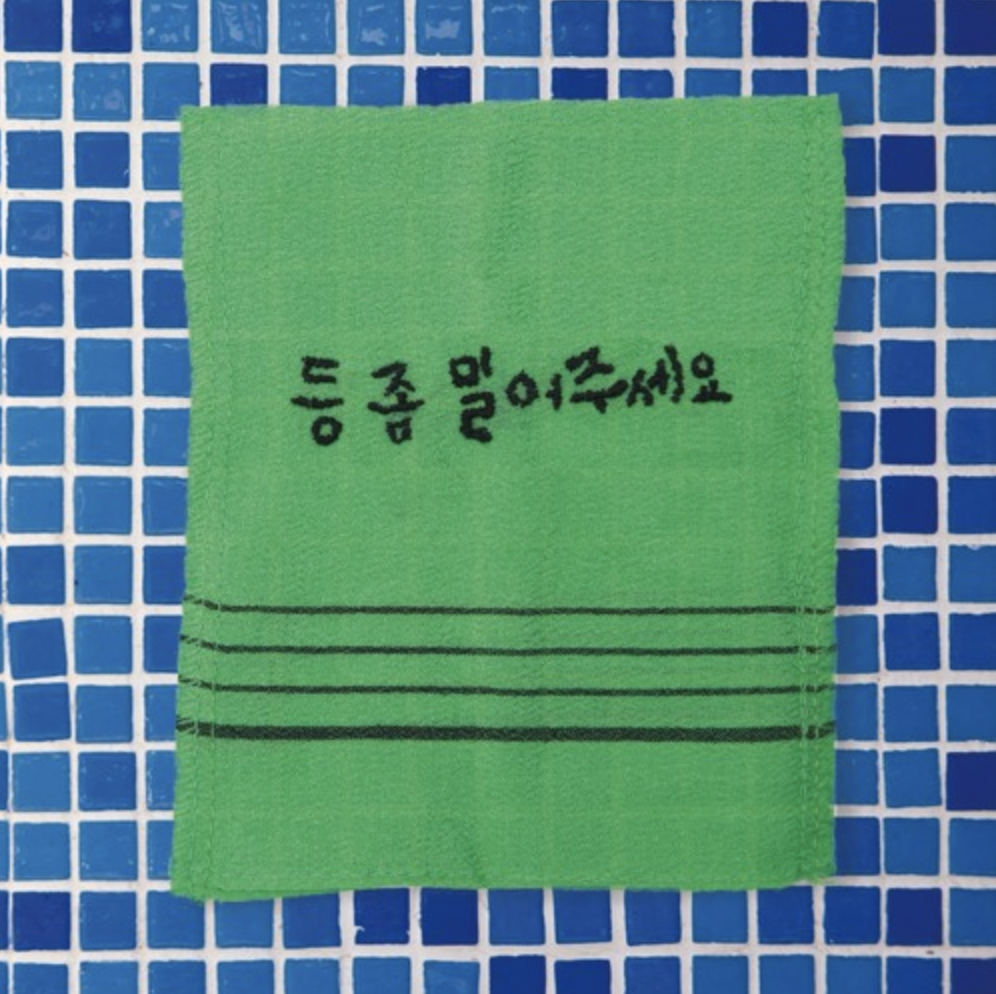 등 좀 밀어주세요